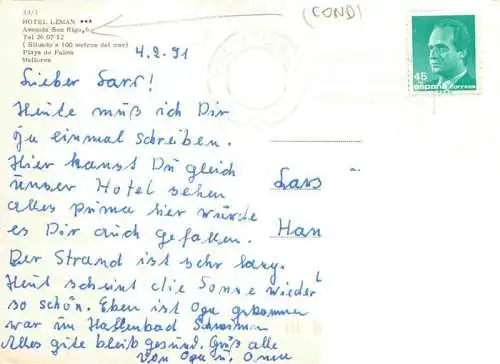 33/1
HOTEL LEMAN ★★★
Avenida Son Rigo, 6
Tel 26 07 12
( Situado a 100 metros del mar)
Playa de Palma
Mallorca
(COND)
4.2.91
45
españa correos
Lieber Lars!
Heute muß ich Dir
ja einmal Schreiben.
Hier kanst Du gleich
unser Hotel sehen
alles prima hier würde
es Dir auch gefallen.
Der Strand ist sehr lang.
Heut scheint die Sonne wieder
so schön. Eben ist Opa gekommen
war im Hallenbad Schwimmen
Alles gute bleib gesund. Grüß alle
von Opa u. Oma
Lars
Han